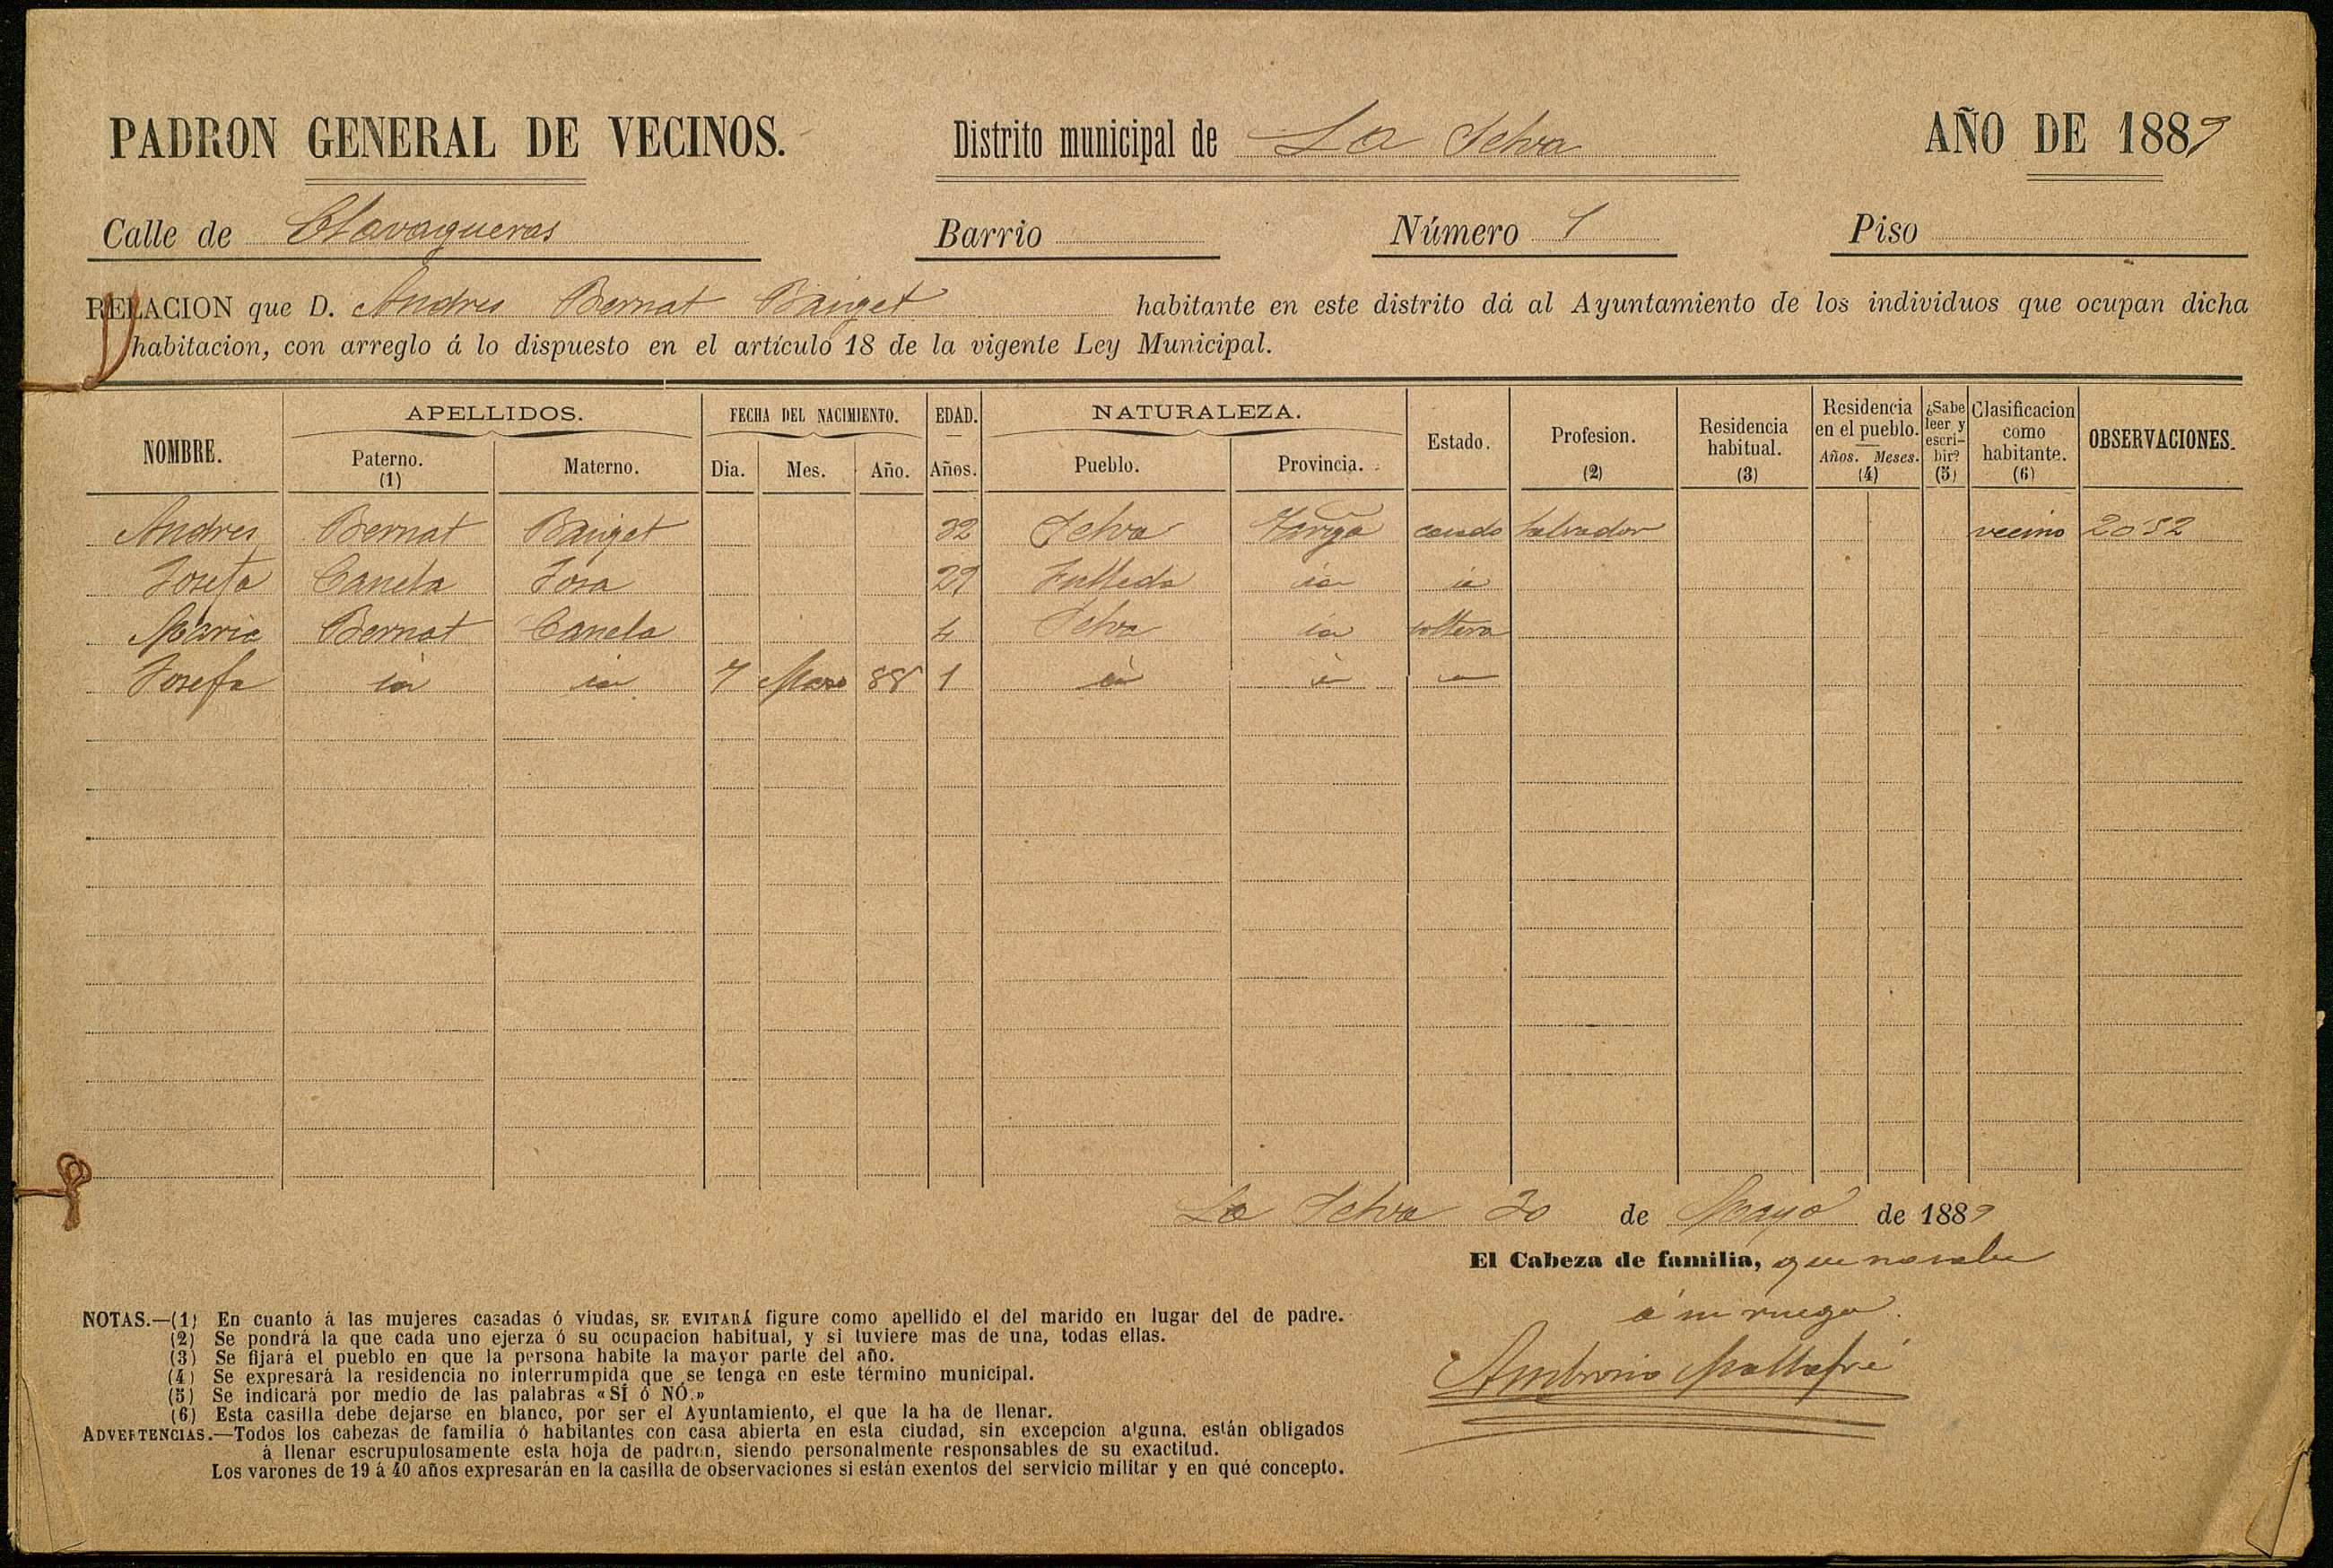 PADRON GENERAL DE VECINOS. Distrito municipal de La Selva AÑO DE 1889
Calle de Clavagueras Barrio Número 1 Piso
RELACION que D. Andres Bernat Baiget habitante en este distrito dá al Ayuntamiento de los individuos que ocupan dicha
habitacion, con arreglo á lo dispuesto en el artículo 18 de la vigente Ley Municipal.
NOMBRE. APELLIDOS. FECHA DEL NACIMIENTO. EDAD. NATURALEZA. Estado. Profesion. (2) Residencia habitual. (3) Residencia en el pueblo. Años. Meses. (4) ¿Sabe leer y escribir? (5) Clasificacion como habitante. (6) OBSERVACIONES.
Paterno. (1) Materno. Dia. Mes. Año. Años. Pueblo. Provincia.
Andres Bernat Baiget 32 Selva Tarrga casado labrador vecino 2052
Josefa Canela Tosa 29 Fulleda id id
Maria Bernat Canela 4 Selva id soltera
Josefa id id 7 Marzo 88 1 id id id
La Selva 20 de Mayo de 1889
El Cabeza de familia, que no sabe
á su ruego.
Ambrosio Mallafré
NOTAS.—(1) En cuanto á las mujeres casadas ó viudas, SE EVITARÁ figure como apellido el del marido en lugar del de padre.
(2) Se pondrá la que cada uno ejerza ó su ocupacion habitual, y si tuviere mas de una, todas ellas.
(3) Se fijará el pueblo en que la persona habite la mayor parte del año.
(4) Se expresará la residencia no interrumpida que se tenga en este término municipal.
(5) Se indicará por medio de las palabras «SÍ ó NÓ.»
(6) Esta casilla debe dejarse en blanco, por ser el Ayuntamiento, el que la ha de llenar.
ADVERTENCIAS.—Todos los cabezas de familia ó habitantes con casa abierta en esta ciudad, sin excepcion alguna, están obligados
á llenar escrupulosamente esta hoja de padron, siendo personalmente responsables de su exactitud.
Los varones de 19 á 40 años expresarán en la casilla de observaciones si están exentos del servicio militar y en qué concepto.